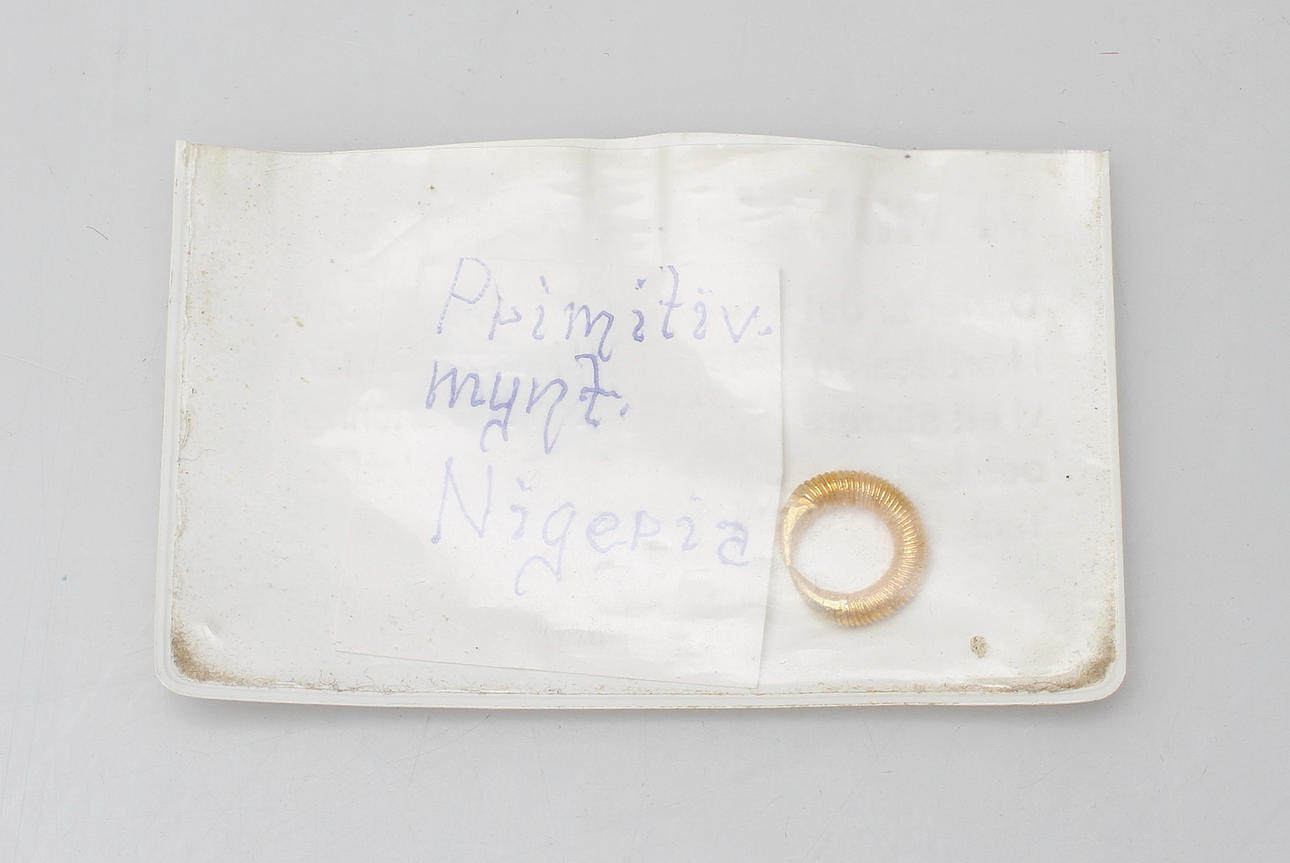 Primitiv-
mynt.
Nigeria